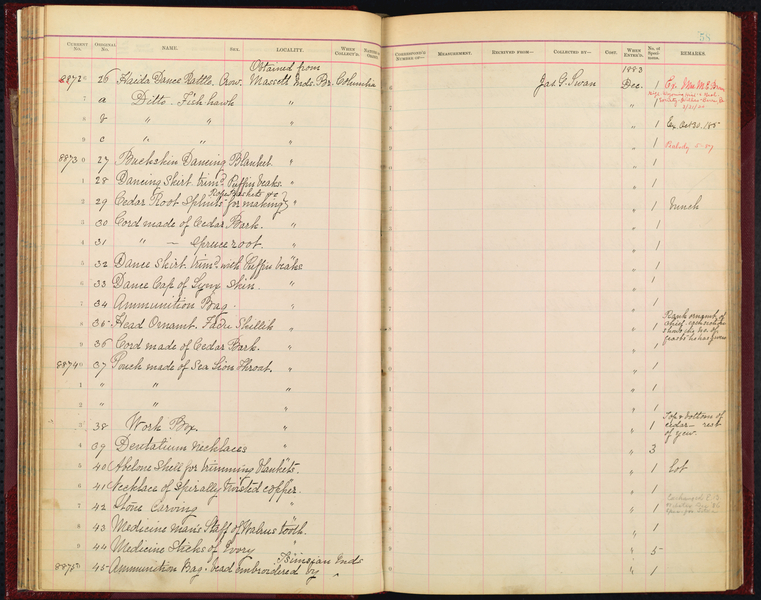 58
CURRENT No. ORIGINAL No. NAME. SEX. LOCALITY. WHEN COLLECT'D. COMMISSIONER'S NUMBER OF— MEASUREMENT. RECEIVED FROM— COLLECTED BY— COST. WHEN ENTER'D. No. of Specimens. REMARKS.
Obtained from 1883
88720 26 Haida Dance Rattle. Crow. Massett Inds. Br. Columbia Jas. G. Swan Dec. 1
7 a Ditto - Fish hawk " " 1
8 b " " " " 1 Ex. Oct 30. 185
9 c " " " " 1
88730 27 Buckskin Dancing Blanket " " 1
1 28 Dancing Skirt trimd. Puffin beaks. " " 1
2 29 Cedar Root Splints for making baskets &c " " 1 bunch
3 30 Cord made of Cedar Bark. " " 1
4 31 " — Spruce root. " " 1
5 32 Dance Skirt. trimd. with Puffin beaks " " 1
6 33 Dance Cap of Lynx Skin. " " 1
7 34 Ammunition Bag. " " 1
8 35 Head Ornamt. " " Rank ornament of chief
9 36 Cord made of Cedar Bark. " "
88740 37 Pouch made of Sea Lion Throat. " " 1
1 " " " " 1
2 " " " " 1
3 38 Work Box. " " 1 Top & bottom of cedar — rest of yew.
4 39 Dentalium Necklaces " " 3
5 40 Abelone Shell for trimming blankets. " 1 lot
6 41 Necklace of spirally twisted copper. " 1
7 42 Stone Carving " " 1
8 43 Medicine man's Staff of Walrus tooth. " 1
9 44 Medicine Sticks of Ivory " " 5
88750 45 Ammunition Bag. bead embroidered by Tsimsian Inds " 1